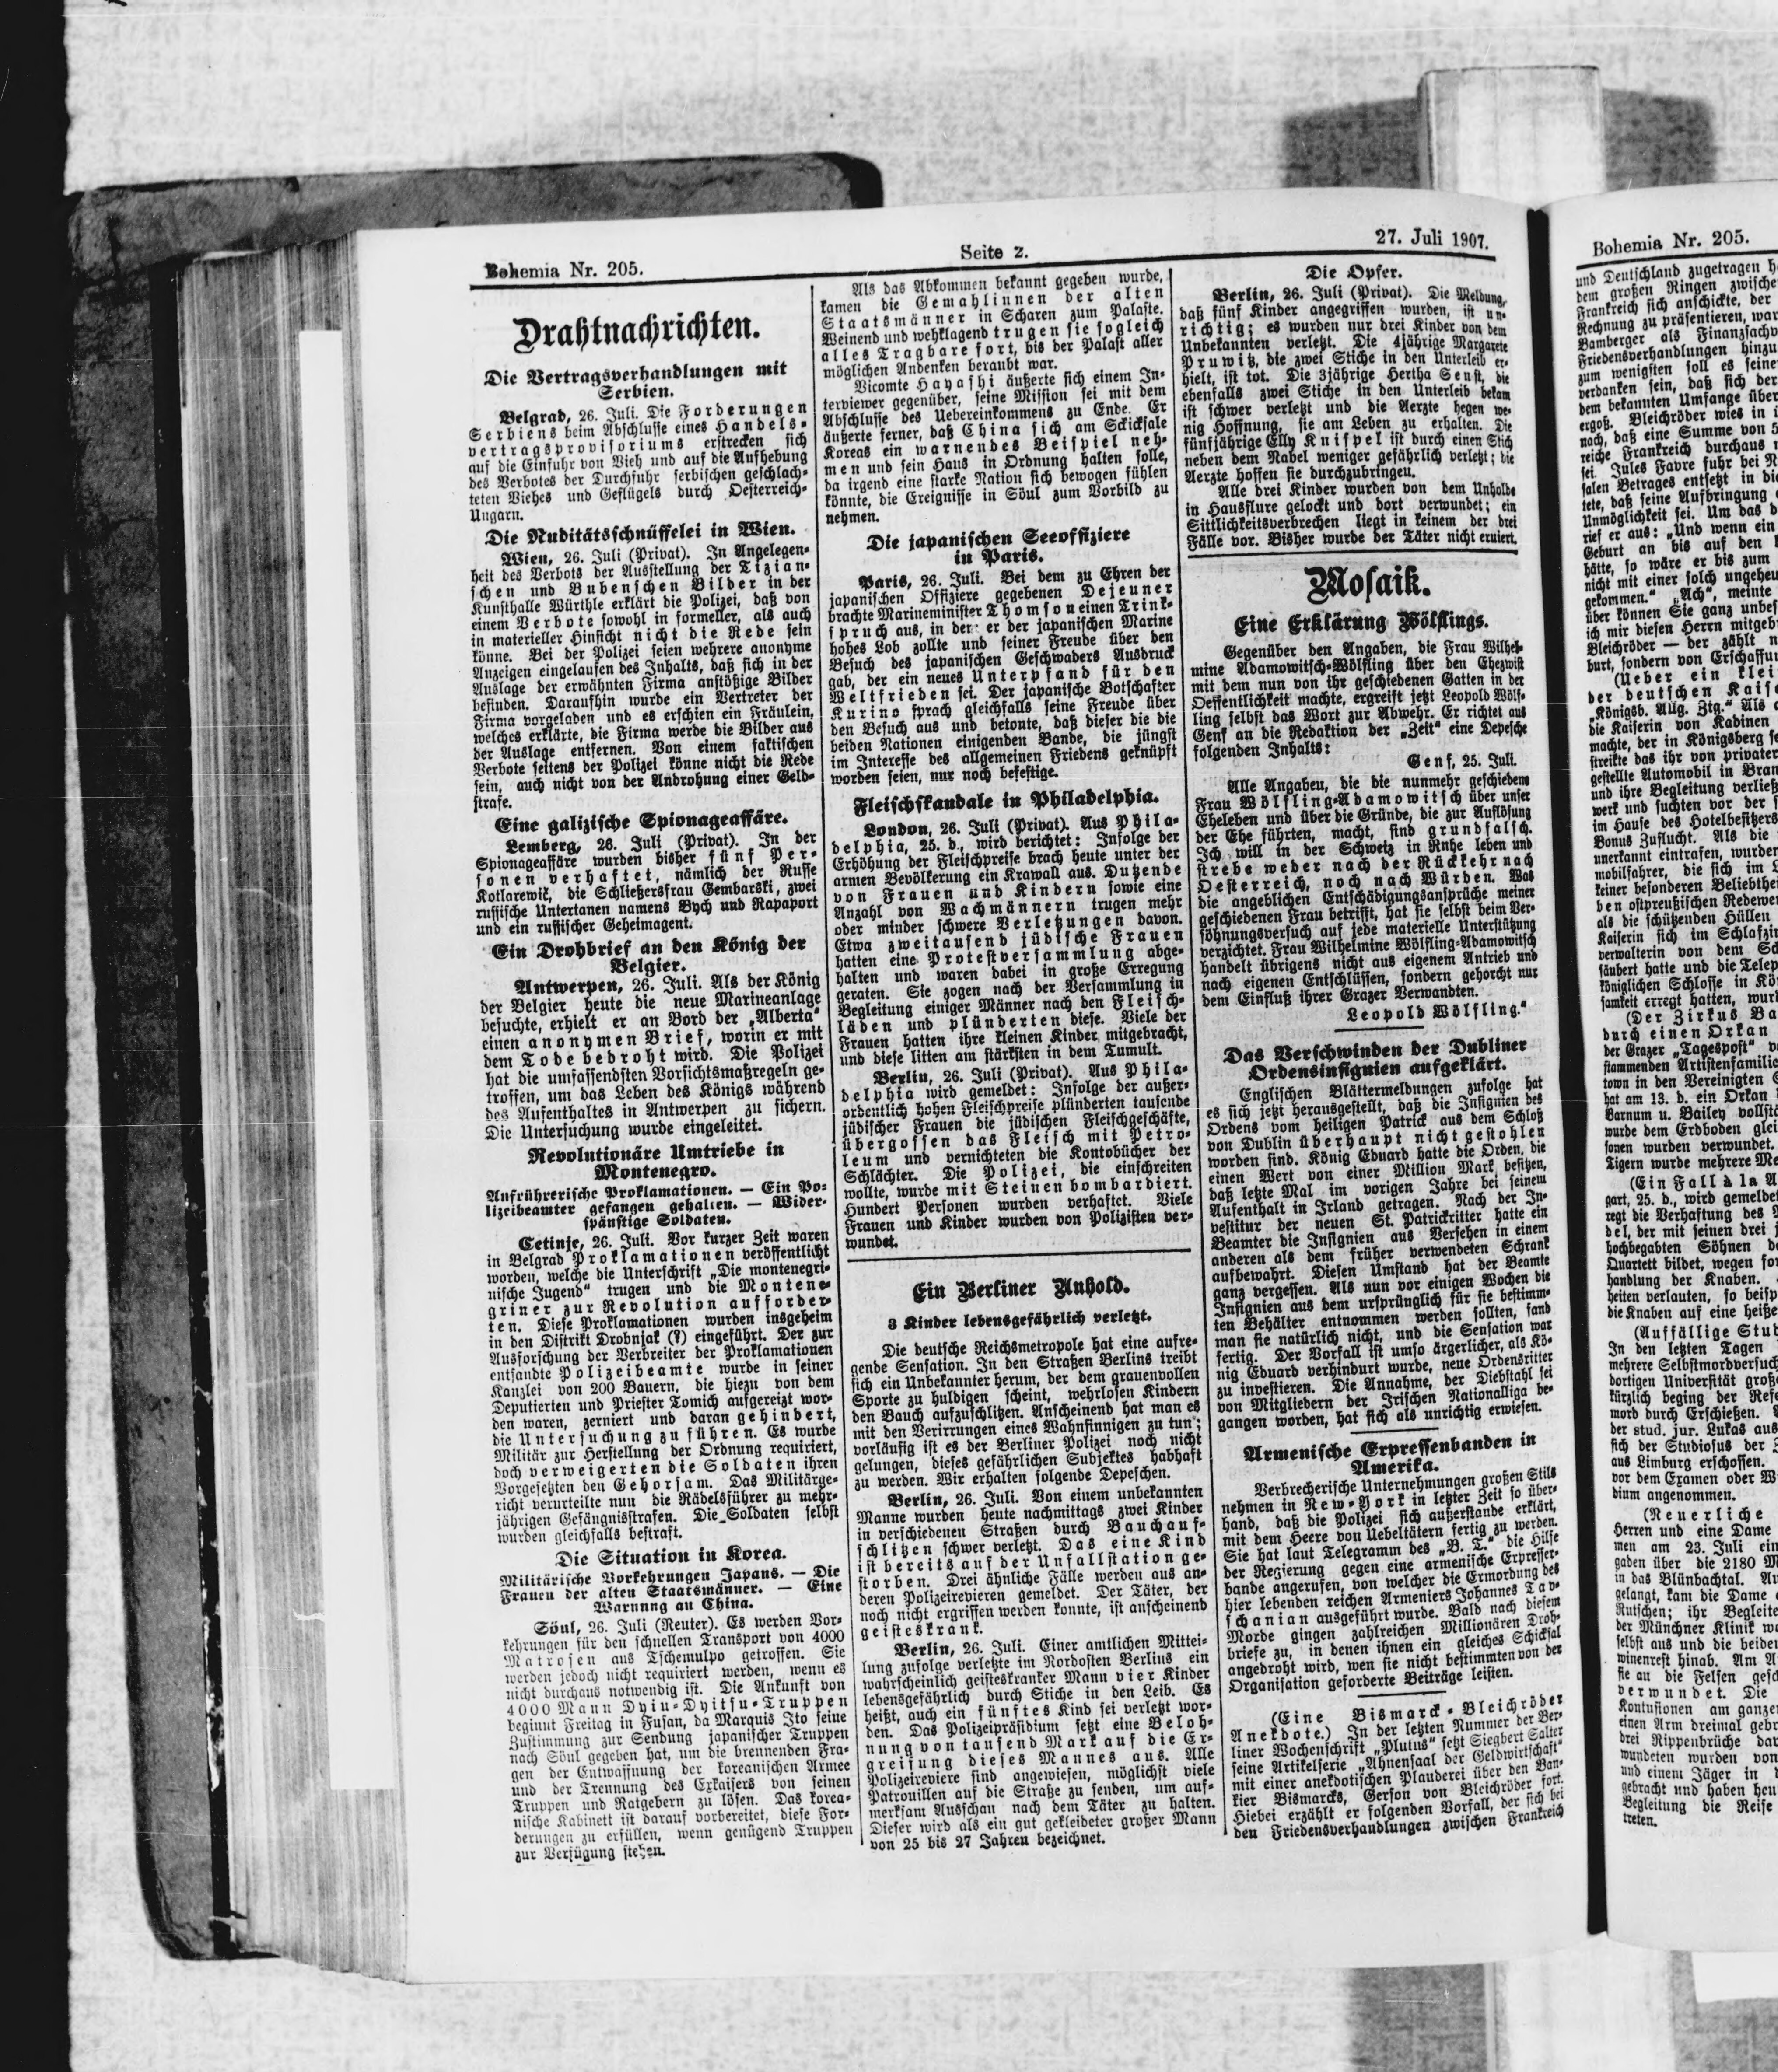 Bohemia Nr. 205.
Seite 2.
27. Juli 1907.
Drahtnachrichten.
Die Vertragsverhandlungen mit
Serbien.
Belgrad, 26. Juli. Die Forderungen
Serbiens beim Abschlusse eines Handels-
vertragsprovisoriums erstrecken sich
auf die Einfuhr von Vieh und auf die Aufhebung
des Verbotes der Durchfuhr serbischen geschlach-
teten Viehes und Geflügels durch Oesterreich-
Ungarn.
Die Nuditätsschnüffelei in Wien.
Wien, 26. Juli (Privat). In Angelegen-
heit des Verbots der Ausstellung der Tizian-
schen und Bubenschen Bilder in der
Kunsthalle Würthle erklärt die Polizei, daß von
einem Verbote sowohl in formeller, als auch
in materieller Hinsicht nicht die Rede sein
könne. Bei der Polizei seien mehrere anonyme
Anzeigen eingelaufen des Inhalts, daß sich in der
Auslage der erwähnten Firma anstößige Bilder
befinden. Daraufhin wurde ein Vertreter der
Firma vorgeladen und es erschien ein Fräulein,
welches erklärte, die Firma werde die Bilder aus
der Auslage entfernen. Von einem faktischen
Verbote seitens der Polizei könne nicht die Rede
sein, auch nicht von der Androhung einer Geld-
strafe.
Eine galizische Spionageaffäre.
Lemberg, 26. Juli (Privat). In der
Spionageaffäre wurden bisher fünf Per-
sonen verhaftet, nämlich der Russe
Kotlarewik, die Schließersfrau Gembarski, zwei
russische Untertanen namens Bych und Rapaport
und ein russischer Geheimagent.
Ein Drohbrief an den König der
Belgier.
Antwerpen, 26. Juli. Als der König
der Belgier heute die neue Marineanlage
besuchte, erhielt er an Bord der „Alberta“
einen anonymen Brief, worin er mit
dem Tode bedroht wird. Die Polizei
hat die umfassendsten Vorsichtsmaßregeln ge-
troffen, um das Leben des Königs während
des Aufenthaltes in Antwerpen zu sichern.
Die Untersuchung wurde eingeleitet.
Revolutionäre Umtriebe in
Montenegro.
Aufrührerische Proklamationen. — Ein Po-
lizeibeamter gefangen gehalten. — Wider-
spänstige Soldaten.
Cetinje, 26. Juli. Vor kurzer Zeit waren
in Belgrad Proklamationen veröffentlicht
worden, welche die Unterschrift „Die montenegri-
nische Jugend“ trugen und die Montene-
griner zur Revolution aufforder-
ten. Diese Proklamationen wurden insgeheim
in den Distrikt Drobnjak (?) eingeführt. Der zur
Ausforschung der Verbreiter der Proklamationen
entsandte Polizeibeamte wurde in seiner
Kanzlei von 200 Bauern, die hiezu von dem
Deputierten und Priester Tomich aufgereizt wor-
den waren, zerniert und daran gehindert,
die Untersuchung zu führen. Es wurde
Militär zur Herstellung der Ordnung requiriert,
doch verweigerten die Soldaten ihren
Vorgesetzten den Gehorsam. Das Militärge-
richt verurteilte nun die Rädelsführer zu mehr-
jährigen Gefängnisstrafen. Die Soldaten selbst
wurden gleichfalls bestraft.
Die Situation in Korea.
Militärische Vorkehrungen Japans. — Die
Frauen der alten Staatsmänner. — Eine
Warnung an China.
Söul, 26. Juli (Reuter). Es werden Vor-
kehrungen für den schnellen Transport von 4000
Matrosen aus Tschemulpo getroffen. Sie
werden jedoch nicht requiriert werden, wenn es
nicht durchaus notwendig ist. Die Ankunft von
4000 Mann Dyiu-Dyitsu-Truppen
beginnt Freitag in Fusan, da Marquis Ito seine
Zustimmung zur Sendung japanischer Truppen
nach Söul gegeben hat, um die brennenden Fra-
gen der Entwaffnung der koreanischen Armee
und der Trennung des Exkaisers von seinen
Truppen und Ratgebern zu lösen. Das korea-
nische Kabinett ist darauf vorbereitet, diese For-
derungen zu erfüllen, wenn genügend Truppen
zur Verfügung stehen.
Als das Abkommen bekannt gegeben wurde,
kamen die Gemahlinnen der alten
Staatsmänner in Scharen zum Palaste.
Weinend und wehklagend trugen sie sogleich
alles Tragbare fort, bis der Palast aller
möglichen Andenken beraubt war.
Vicomte Hayashi äußerte sich einem In-
terviewer gegenüber, seine Mission sei mit dem
Abschlusse des Uebereinkommens zu Ende. Er
äußerte ferner, daß China sich am Schicksale
Koreas ein warnendes Beispiel neh-
men und sein Haus in Ordnung halten solle,
da irgend eine starke Nation sich bewogen fühlen
könnte, die Ereignisse in Söul zum Vorbild zu
nehmen.
Die japanischen Seeoffiziere
in Paris.
Paris, 26. Juli. Bei dem zu Ehren der
japanischen Offiziere gegebenen Dejeuner
brachte Marineminister Thomson einen Trink-
spruch aus, in der er der japanischen Marine
hohes Lob zollte und seiner Freude über den
Besuch des japanischen Geschwaders Ausdruck
gab, der ein neues Unterpfand für den
Weltfrieden sei. Der japanische Botschafter
Kurino sprach gleichfalls seine Freude über
den Besuch aus und betonte, daß dieser die die
beiden Nationen einigenden Bande, die jüngst
im Interesse des allgemeinen Friedens geknüpft
worden seien, nur noch befestige.
Fleischskandale in Philadelphia.
London, 26. Juli (Privat). Aus Phila-
delphia, 25. d., wird berichtet: Infolge der
Erhöhung der Fleischpreise brach heute unter der
armen Bevölkerung ein Krawall aus. Dutzende
von Frauen und Kindern sowie eine
Anzahl von Wachmännern trugen mehr
oder minder schwere Verletzungen davon.
Etwa zweitausend jüdische Frauen
hatten eine Protestversammlung abge-
halten und waren dabei in große Erregung
geraten. Sie zogen nach der Versammlung in
Begleitung einiger Männer nach den Fleisch-
läden und plünderten diese. Viele der
Frauen hatten ihre kleinen Kinder mitgebracht,
und diese litten am stärksten in dem Tumult.
Berlin, 26. Juli (Privat). Aus Phila-
delphia wird gemeldet: Infolge der außer-
ordentlich hohen Fleischpreise plünderten tausende
jüdischer Frauen die jüdischen Fleischgeschäfte,
übergossen das Fleisch mit Petro-
leum und vernichteten die Kontobücher der
Schlächter. Die Polizei, die einschreiten
wollte, wurde mit Steinen bombardiert.
Hundert Personen wurden verhaftet. Viele
Frauen und Kinder wurden von Polizisten ver-
wundet.
Ein Berliner Unhold.
3 Kinder lebensgefährlich verletzt.
Die deutsche Reichsmetropole hat eine aufre-
gende Sensation. In den Straßen Berlins treibt
sich ein Unbekannter herum, der dem grauenvollen
Sporte zu huldigen scheint, wehrlosen Kindern
den Bauch aufzuschlitzen. Anscheinend hat man es
mit den Verirrungen eines Wahnsinnigen zu tun;
vorläufig ist es der Berliner Polizei noch nicht
gelungen, dieses gefährlichen Subjektes habhaft
zu werden. Wir erhalten folgende Depeschen.
Berlin, 26. Juli. Von einem unbekannten
Manne wurden heute nachmittags zwei Kinder
in verschiedenen Straßen durch Bauchauf-
schlitzen schwer verletzt. Das eine Kind
ist bereits auf der Unfallstation ge-
storben. Drei ähnliche Fälle werden aus an-
deren Polizeirevieren gemeldet. Der Täter, der
noch nicht ergriffen werden konnte, ist anscheinend
geisteskrank.
Berlin, 26. Juli. Einer amtlichen Mittei-
lung zufolge verletzte im Nordosten Berlins ein
wahrscheinlich geisteskranker Mann vier Kinder
lebensgefährlich durch Stiche in den Leib. Es
heißt, auch ein fünftes Kind sei verletzt wor-
den. Das Polizeipräsidium setzt eine Beloh-
nung von tausend Mark auf die Er-
greifung dieses Mannes aus. Alle
Polizeireviere sind angewiesen, möglichst viele
Patrouillen auf die Straße zu senden, um auf-
merksam Ausschau nach dem Täter zu halten.
Dieser wird als ein gut gekleideter großer Mann
von 25 bis 27 Jahren bezeichnet.
Die Opfer.
Berlin, 26. Juli (Privat). Die Meldung,
daß fünf Kinder angegriffen wurden, ist un-
richtig; es wurden nur drei Kinder von dem
Unbekannten verletzt. Die 4jährige Margarete
Pruwitz, die zwei Stiche in den Unterleib er-
hielt, ist tot. Die 3jährige Hertha Senst, die
ebenfalls zwei Stiche in den Unterleib bekam
ist schwer verletzt und die Aerzte hegen we-
nig Hoffnung, sie am Leben zu erhalten. Die
fünfjährige Elly Knispel ist durch einen Stich
neben dem Nabel weniger gefährlich verletzt; die
Aerzte hoffen sie durchzubringeu.
Alle drei Kinder wurden von dem Unholde
in Hausflure gelockt und dort verwundet; ein
Sittlichkeitsverbrechen liegt in keinem der drei
Fälle vor. Bisher wurde der Täter nicht eruiert.
Mosaik.
Eine Erklärung Wölflings.
Gegenüber den Angaben, die Frau Wilhel-
mine Adamowitsch-Wölfling über den Ehezwist
mit dem nun von ihr geschiedenen Gatten in der
Oeffentlichkeit machte, ergreift jetzt Leopold Wölf-
ling selbst das Wort zur Abwehr. Er richtet aus
Genf an die Redaktion der „Zeit“ eine Depesche
folgenden Inhalts:
Genf, 25. Juli.
Alle Angabeu, die die nunmehr geschiedene
Frau Wölfling-Adamowitsch über unser
Eheleben und über die Gründe, die zur Auflösung
der Ehe führten, macht, sind grundfalsch.
Ich will in der Schweiz in Ruhe leben und
strebe weder nach der Rückkehr nach
Oesterreich, noch nach Würden. Was
die angeblichen Entschädigungsansprüche meiner
geschiedenen Frau betrifft, hat sie selbst beim Ver-
söhnungsversuch auf jede materielle Unterstützung
verzichtet. Frau Wilhelmine Wölfling-Adamowitsch
handelt übrigens nicht aus eigenem Antrieb und
nach eigenen Entschlüssen, sondern gehorcht nur
dem Einfluß ihrer Grazer Verwandten.
Leopold Wölfling.“
Das Verschwinden der Dubliner
Ordensinsignien aufgeklärt.
Englischen Blättermeldungen zufolge hat
es sich jetzt herausgestellt, daß die Insignien des
Ordens vom heiligen Patrick aus dem Schloß
von Dublin überhaupt nicht gestohlen
worden sind. König Eduard hatte die Orden, die
einen Wert von einer Million Mark besitzen,
daß letzte Mal im vorigen Jahre bei seinem
Aufenthalt in Irland getragen. Nach der In-
vestitur der neuen St. Patrickritter hatte ein
Beamter die Insignien aus Versehen in einem
anderen als dem früher verwendeten Schrank
aufbewahrt. Diesen Umstand hat der Beamte
ganz vergessen. Als nun vor einigen Wochen die
Insignien aus dem ursprünglich für sie bestimm-
ten Behälter entnommen werden sollten, fand
man sie natürlich nicht, und die Sensation war
fertig. Der Vorfall ist umso ärgerlicher, als Kö-
nig Eduard verhindurt wurde, neue Ordensritter
zu investieren. Die Annahme, der Diebstahl sei
von Mitgliedern der Irischen Nationalliga be-
gangen worden, hat sich als unrichtig erwiesen.
Armenische Erpressenbanden in
Amerika.
Verbrecherische Unternehmungen großen Stils
nehmen in New-York in letzter Zeit so über-
hand, daß die Polizei sich außerstande erklärt,
mit dem Heere von Uebeltätern fertig zu werden.
Sie hat laut Telegramm des „B. T.“ die Hilfe
der Regierung gegen eine armenische Erpresser-
bande angerufen, von welcher die Ermordung des
hier lebenden reichen Armeniers Johannes Tav-
schanian ausgeführt wurde. Bald nach diesem
Morde gingen zahlreichen Millionären Droh-
briefe zu, in denen ihnen ein gleiches Schicksal
angedroht wird, wen sie nicht bestimmten von der
Organisation geforderte Beiträge leisten.
(Eine Bismarck-Bleichröder
Anekdote.) In der letzten Nummer der Ber-
liner Wochenschrift „Plutus“ setzt Siegbert Salter
seine Artikelserie „Ahnensaal der Geldwirtschaft“
mit einer anekdotischen Plauderei über den Ban-
kier Bismarcks, Gerson von Bleichröder fort.
Hiebei erzählt er folgenden Vorfall, der sich bei
den Friedensverhandlungen zwischen Frankreich
Bohemia Nr. 205.
und Deutschland zugetragen
dem großen Ringen zwische
Frankreich sich anschickte, der
Rechnung zu präsentieren, war
Bamberger als Finanzfachv
Friedensverhandlungen hinzu
zum wenigsten soll es seine
verdanken sein, daß sich der
dem bekannten Umfange über
ergoß. Bleichröder wies in
nach, daß eine Summe von 5
reiche Frankreich durchaus
sei. Jules Favre fuhr bei
salen Betrages entsetzt in die
tete, daß seine Aufbringung
Unmöglichkeit sei. Um das
rief er aus: „Und wenn ein
Geburt an bis auf den
hätte, so wäre er bis zum
nicht mit einer solch ungeheu
gekommen.“ „Ach“, meinte
über können Sie ganz unbes
ich mir diesen Herrn mitgeb
Bleichröder — der zählt
burt, sondern von Erschaffu
(Ueber ein klei
der deutschen Kais
„Königsb. Allg. Ztg.“ Als
die Kaiserin von Kabinen
machte, der in Königsberg
streikte das ihr von privater
gestellte Automobil in Bran
und ihre Begleitung verließ
werk und suchten vor der
im Hause des Hotelbesitzers
Bonus Zuflucht. Als die
unerkannt eintrafen, wurden
mobilfahrer, die sich im
keiner besonderen Beliebthei
ben ostpreußischen Redewe
als die schützenden Hüllen
Kaiserin sich im Schlafzi
verwalterin von dem
säubert hatte und die Telep
königlichen Schlosse in Kö
samkeit erregt hatten, wur
(Der Zirkus Ba
durch einen Orkan
der Grazer „Tagespost“
stammenden Artistenfamilie
town in den Vereinigten
hat am 13. d. ein Orkan
Barnum u. Bailey vollst
wurde dem Erdboden glei
sonen wurden verwundet.
Tigern wurde mehrere Me
(Ein Fall à la
gart, 25. d., wird gemeldet
regt die Verhaftung des
del, der mit seinen drei
hochbegabten Söhnen
Quartett bildet, wegen
handlung der Knaben.
heiten verlauten, so beisp
die Knaben auf eine heiße
(Auffällige Stud
In den letzten Tagen
mehrere Selbstmordversuch
dortigen Universität groß
kürzlich beging der Refe
mord durch Erschießen.
der stud. jur. Lukas aus
sich der Studiosus der
aus Limburg erschossen.
vor dem Examen oder
dium angenommen.
(Neuerliche
Herren und eine Dame
men am 23. Juli ein
gaben über die 2180
in das Blünbachtal.
gelangt, kam die Dame
Rutschen; ihr Begleite
der Münchner Klinik
selbst aus und die beiden
winenrest hinab. Am
sie an die Felsen gesc
verwundet. Die
Kontusionen am ganzen
einen Arm dreimal gebr
drei Rippenbrüche
wundeten wurden von
und einem Jäger in
gebracht und haben heu
Begleitung die Reise
treten.